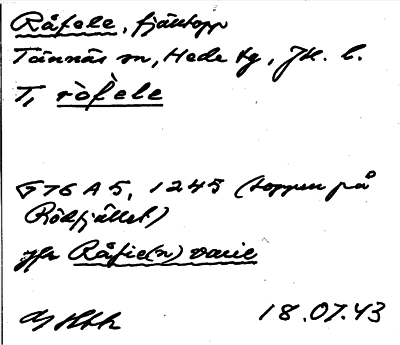 Råfele, fjälltopp
Tännäs sn, Hede tg, Jtl. l.
T, ròfè̀le
G76 A5, 1245 (toppen på
Rödfjället)
jfr Råfie(n) varie
18.07.43